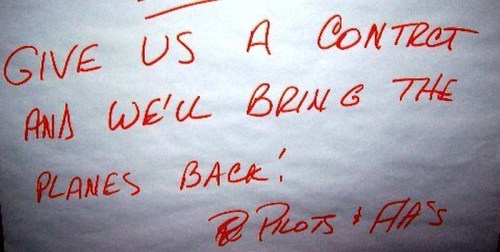 GIVE US A CONTRCT
AND WE'LL BRING THE
PLANES BACK!
PILOTS & F/A'S